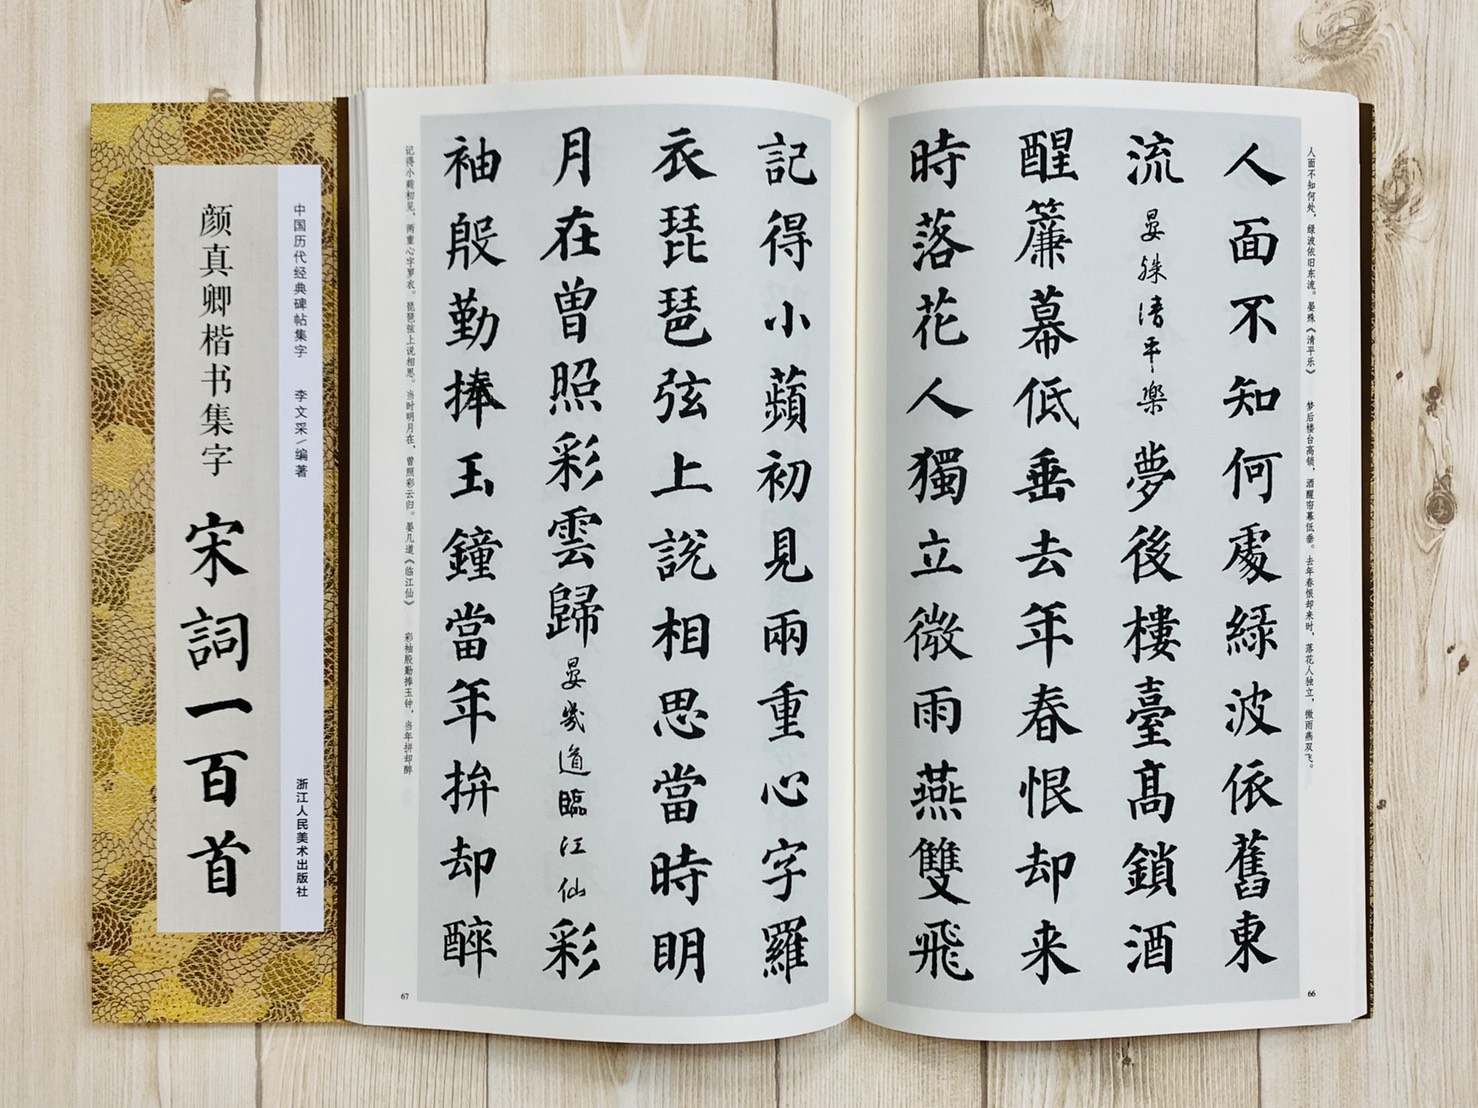 人面不知何處綠波依舊東
流晏殊清平樂夢後樓臺高鎖酒
醒簾幕低垂去年春恨却来
時落花人獨立微雨燕雙飛
人面不知何处，绿波依旧东流。晏殊《清平乐》 梦后楼台高锁，酒醒帘幕低垂。去年春恨却来时，落花人独立，微雨燕双飞。
66
記得小蘋初見兩重心字羅
衣琵琶弦上說相思當時明
月在曾照彩雲歸晏幾道臨江仙彩
袖殷勤捧玉鐘當年拚却醉
记得小蘋初见，两重心字罗衣。琵琶弦上说相思。当时明月在，曾照彩云归。晏几道《临江仙》 彩袖殷勤捧玉钟，当年拚却醉
67
中国历代经典碑帖集字 李文采/编著 浙江人民美术出版社
颜真卿楷书集字 宋詞一百首